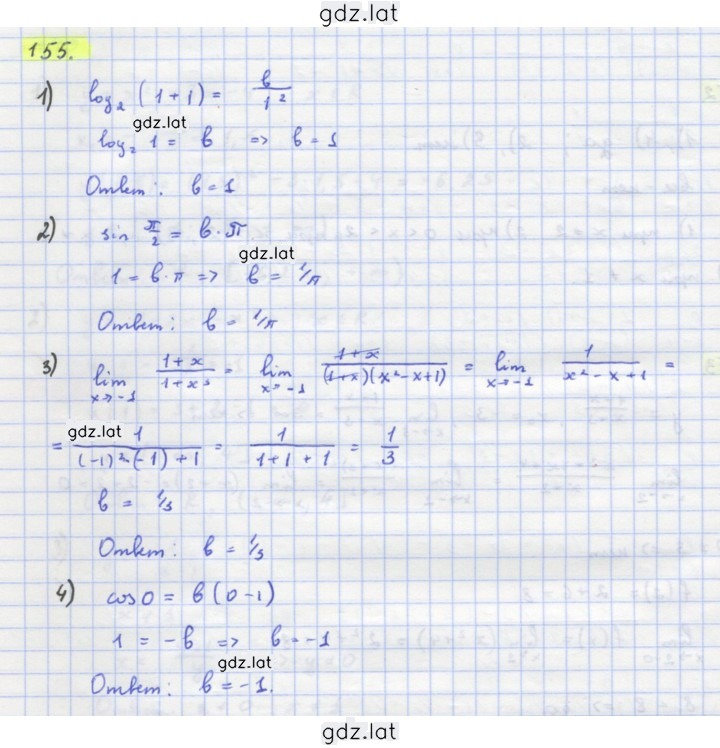 gdz.lat
155.
1) log₂ (1+1) = b/1²
gdz.lat
log₂ 1 = b => b = 1
Ответ: b = 1
2) sin π/2 = b·π
gdz.lat
1 = b·π => b = 1/π
Ответ: b = 1/π
3) lim x→-1 (1+x)/(1+x³) = lim x→-1 (1+x)/((1+x)(x²-x+1)) = lim x→-1 1/(x²-x+1) =
gdz.lat
= 1/((-1)²-(-1)+1) = 1/(1+1+1) = 1/3
b = 1/3
Ответ: b = 1/3
4) cos 0 = b(0-1)
1 = -b => b = -1
gdz.lat
Ответ: b = -1.
gdz.lat